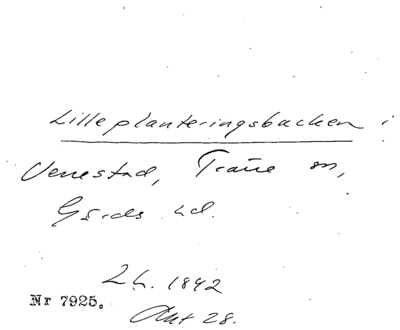 Lilleplanteringsbacken i
Venestad, Träne sn,
Gärds hd.
Lh. 1892
Nr 7925.
Akt 28.